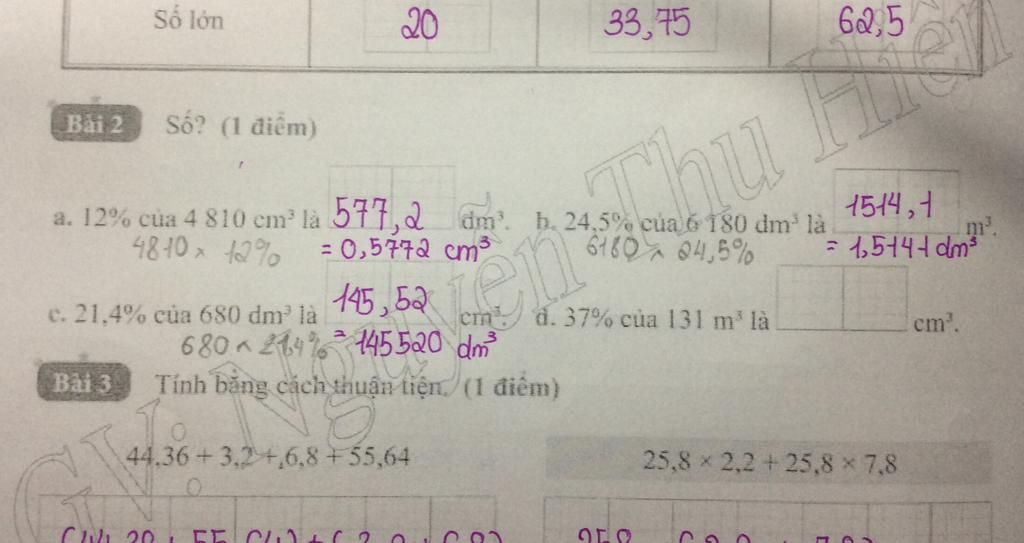 Số lớn 20 33,75 62,5
Bài 2 Số? (1 điểm)
a. 12% của 4 810 cm³ là 577,2 dm³. b. 24,5% của 6 180 dm³ là 1514,1 m³.
4810 × 12% = 0,5772 cm³ 6180 × 24,5% = 1,5141 dm³
c. 21,4% của 680 dm³ là 145,52 cm³. d. 37% của 131 m³ là cm³.
680 × 21,4% = 145520 dm³
Bài 3 Tính bằng cách thuận tiện. (1 điểm)
44,36 + 3,2 + 6,8 + 55,64 25,8 × 2,2 + 25,8 × 7,8
GV. Nguyễn Thu Hiền